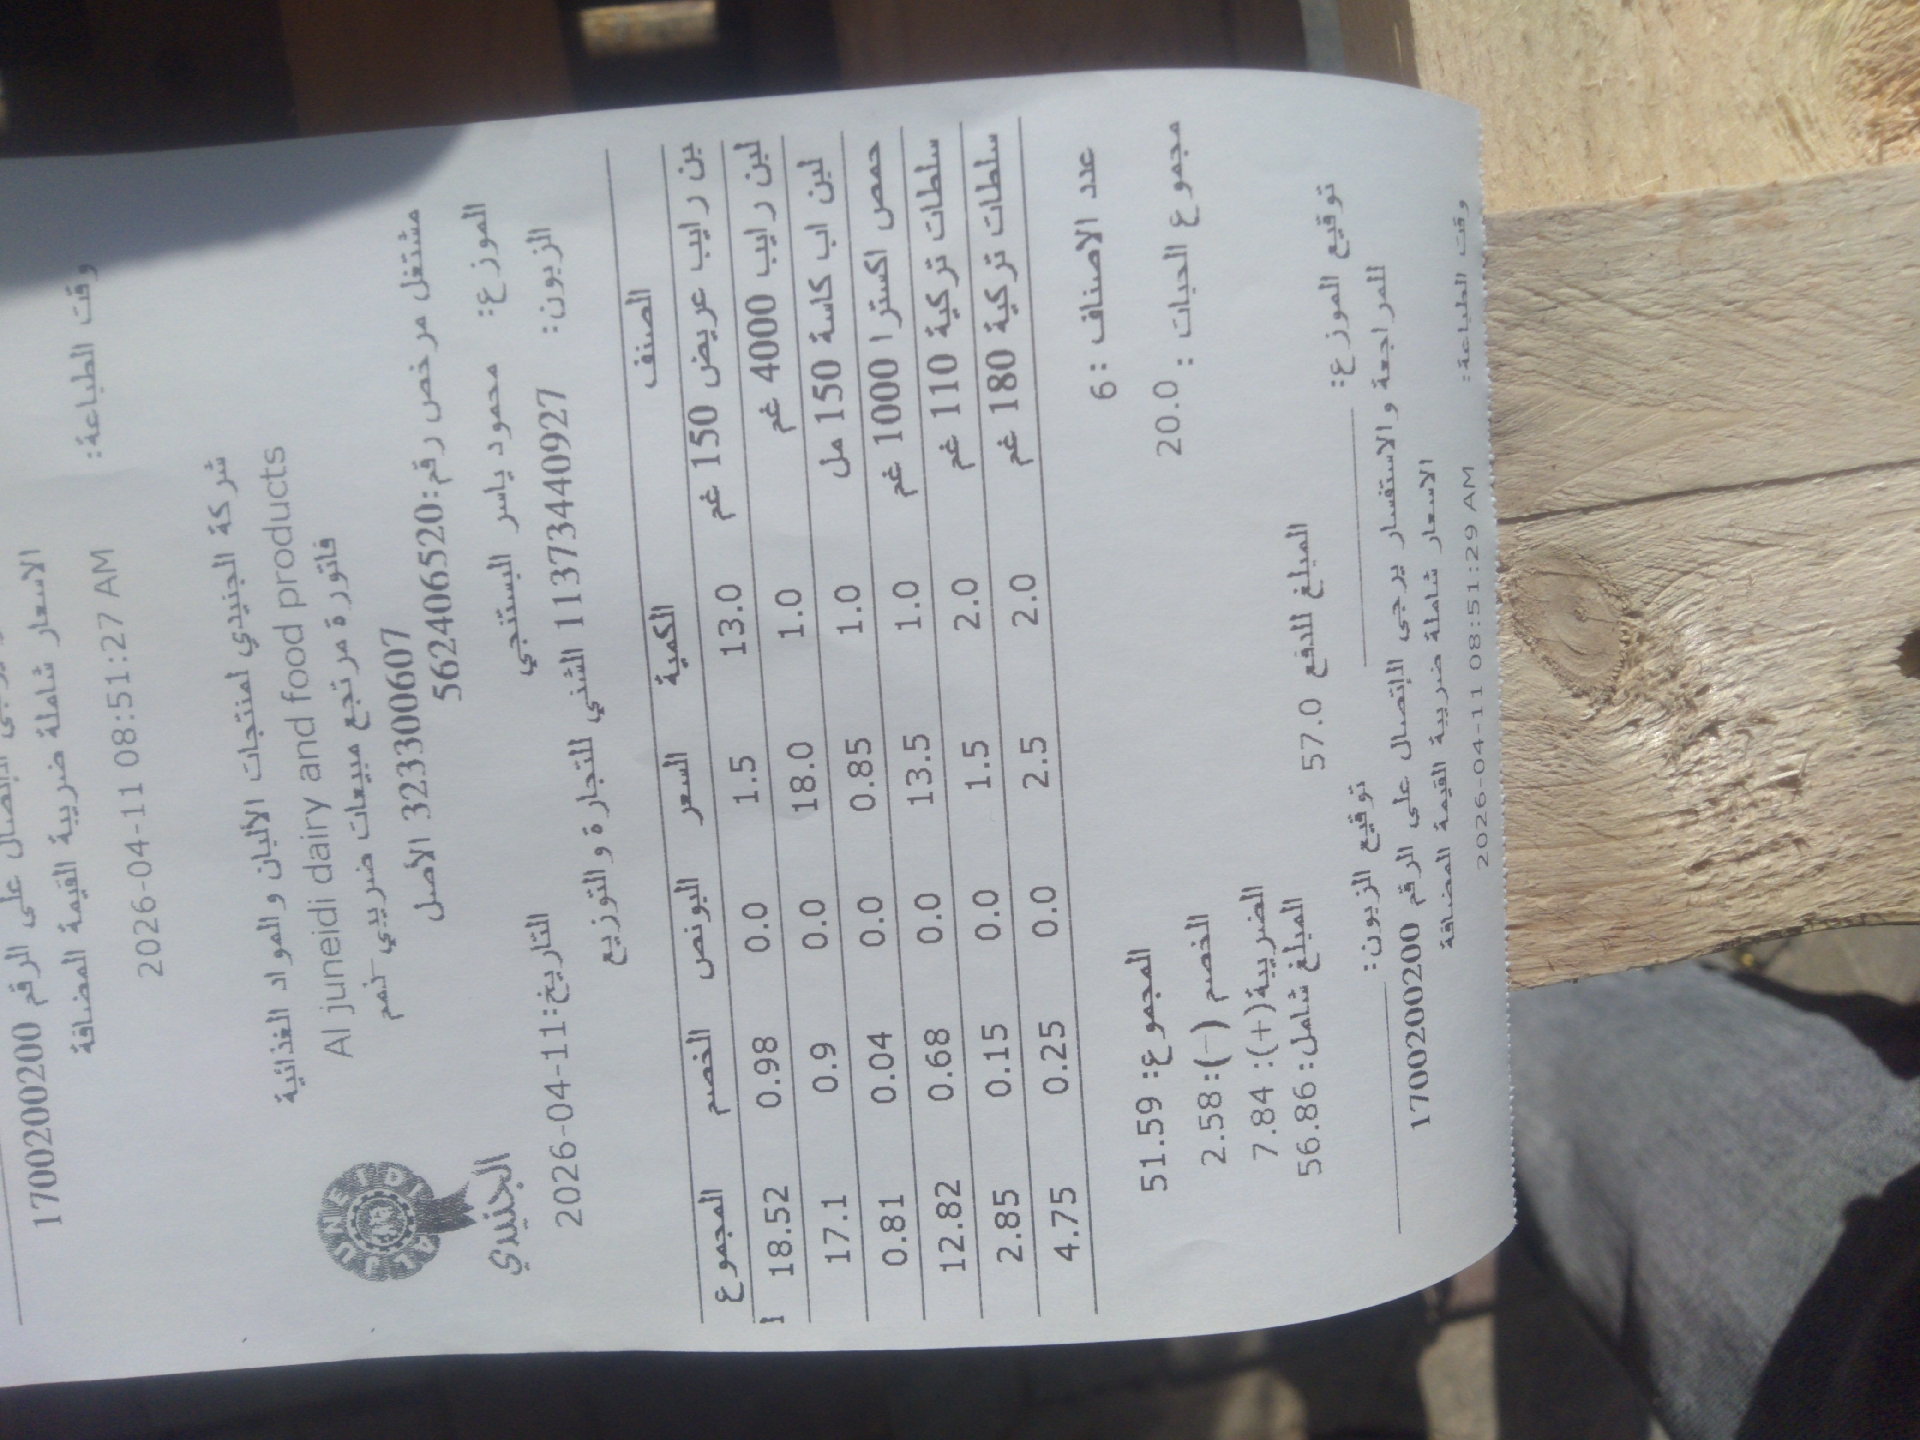 للإتصال على الرقم 1700200200
الاسعار شاملة ضريبة القيمة المضافة
وقت الطباعة:
2026-04-11 08:51:27 AM
شركة الجنيدي لمنتجات الألبان والمواد الغذائية
Al juneidi dairy and food products
فاتورة مرتجع مبيعات ضريبي -نمم
3233300607 الأصل
مشتغل مرخص رقم:562406520
AL JUNEIDI
الجنيدي
الموزع: محمود ياسر البستنجي
التاريخ:2026-04-11
الزبون: 11373440927 الشني للتجارة والتوزيع
الصنف الكمية السعر البونص الخصم المجموع
بن رايب عريض 150 غم 13.0 1.5 0.0 0.98 18.52
لبن رايب 4000 غم 1.0 18.0 0.0 0.9 17.1
لبن اب كاسة 150 مل 1.0 0.85 0.0 0.04 0.81
حمص اكسترا 1000 غم 1.0 13.5 0.0 0.68 12.82
سلطات تركية 110 غم 2.0 1.5 0.0 0.15 2.85
سلطات تركية 180 غم 2.0 2.5 0.0 0.25 4.75
عدد الاصناف : 6
المجموع: 51.59
مجموع الحبات : 20.0
الخصم (-): 2.58
الضريبة(+): 7.84
المبلغ شامل: 56.86
المبلغ للدفع 57.0
توقيع الموزع:
توقيع الزبون:
للمراجعة والاستفسار يرجى للإتصال على الرقم 1700200200
الاسعار شاملة ضريبة القيمة المضافة
وقت الطباعة:
2026-04-11 08:51:29 AM